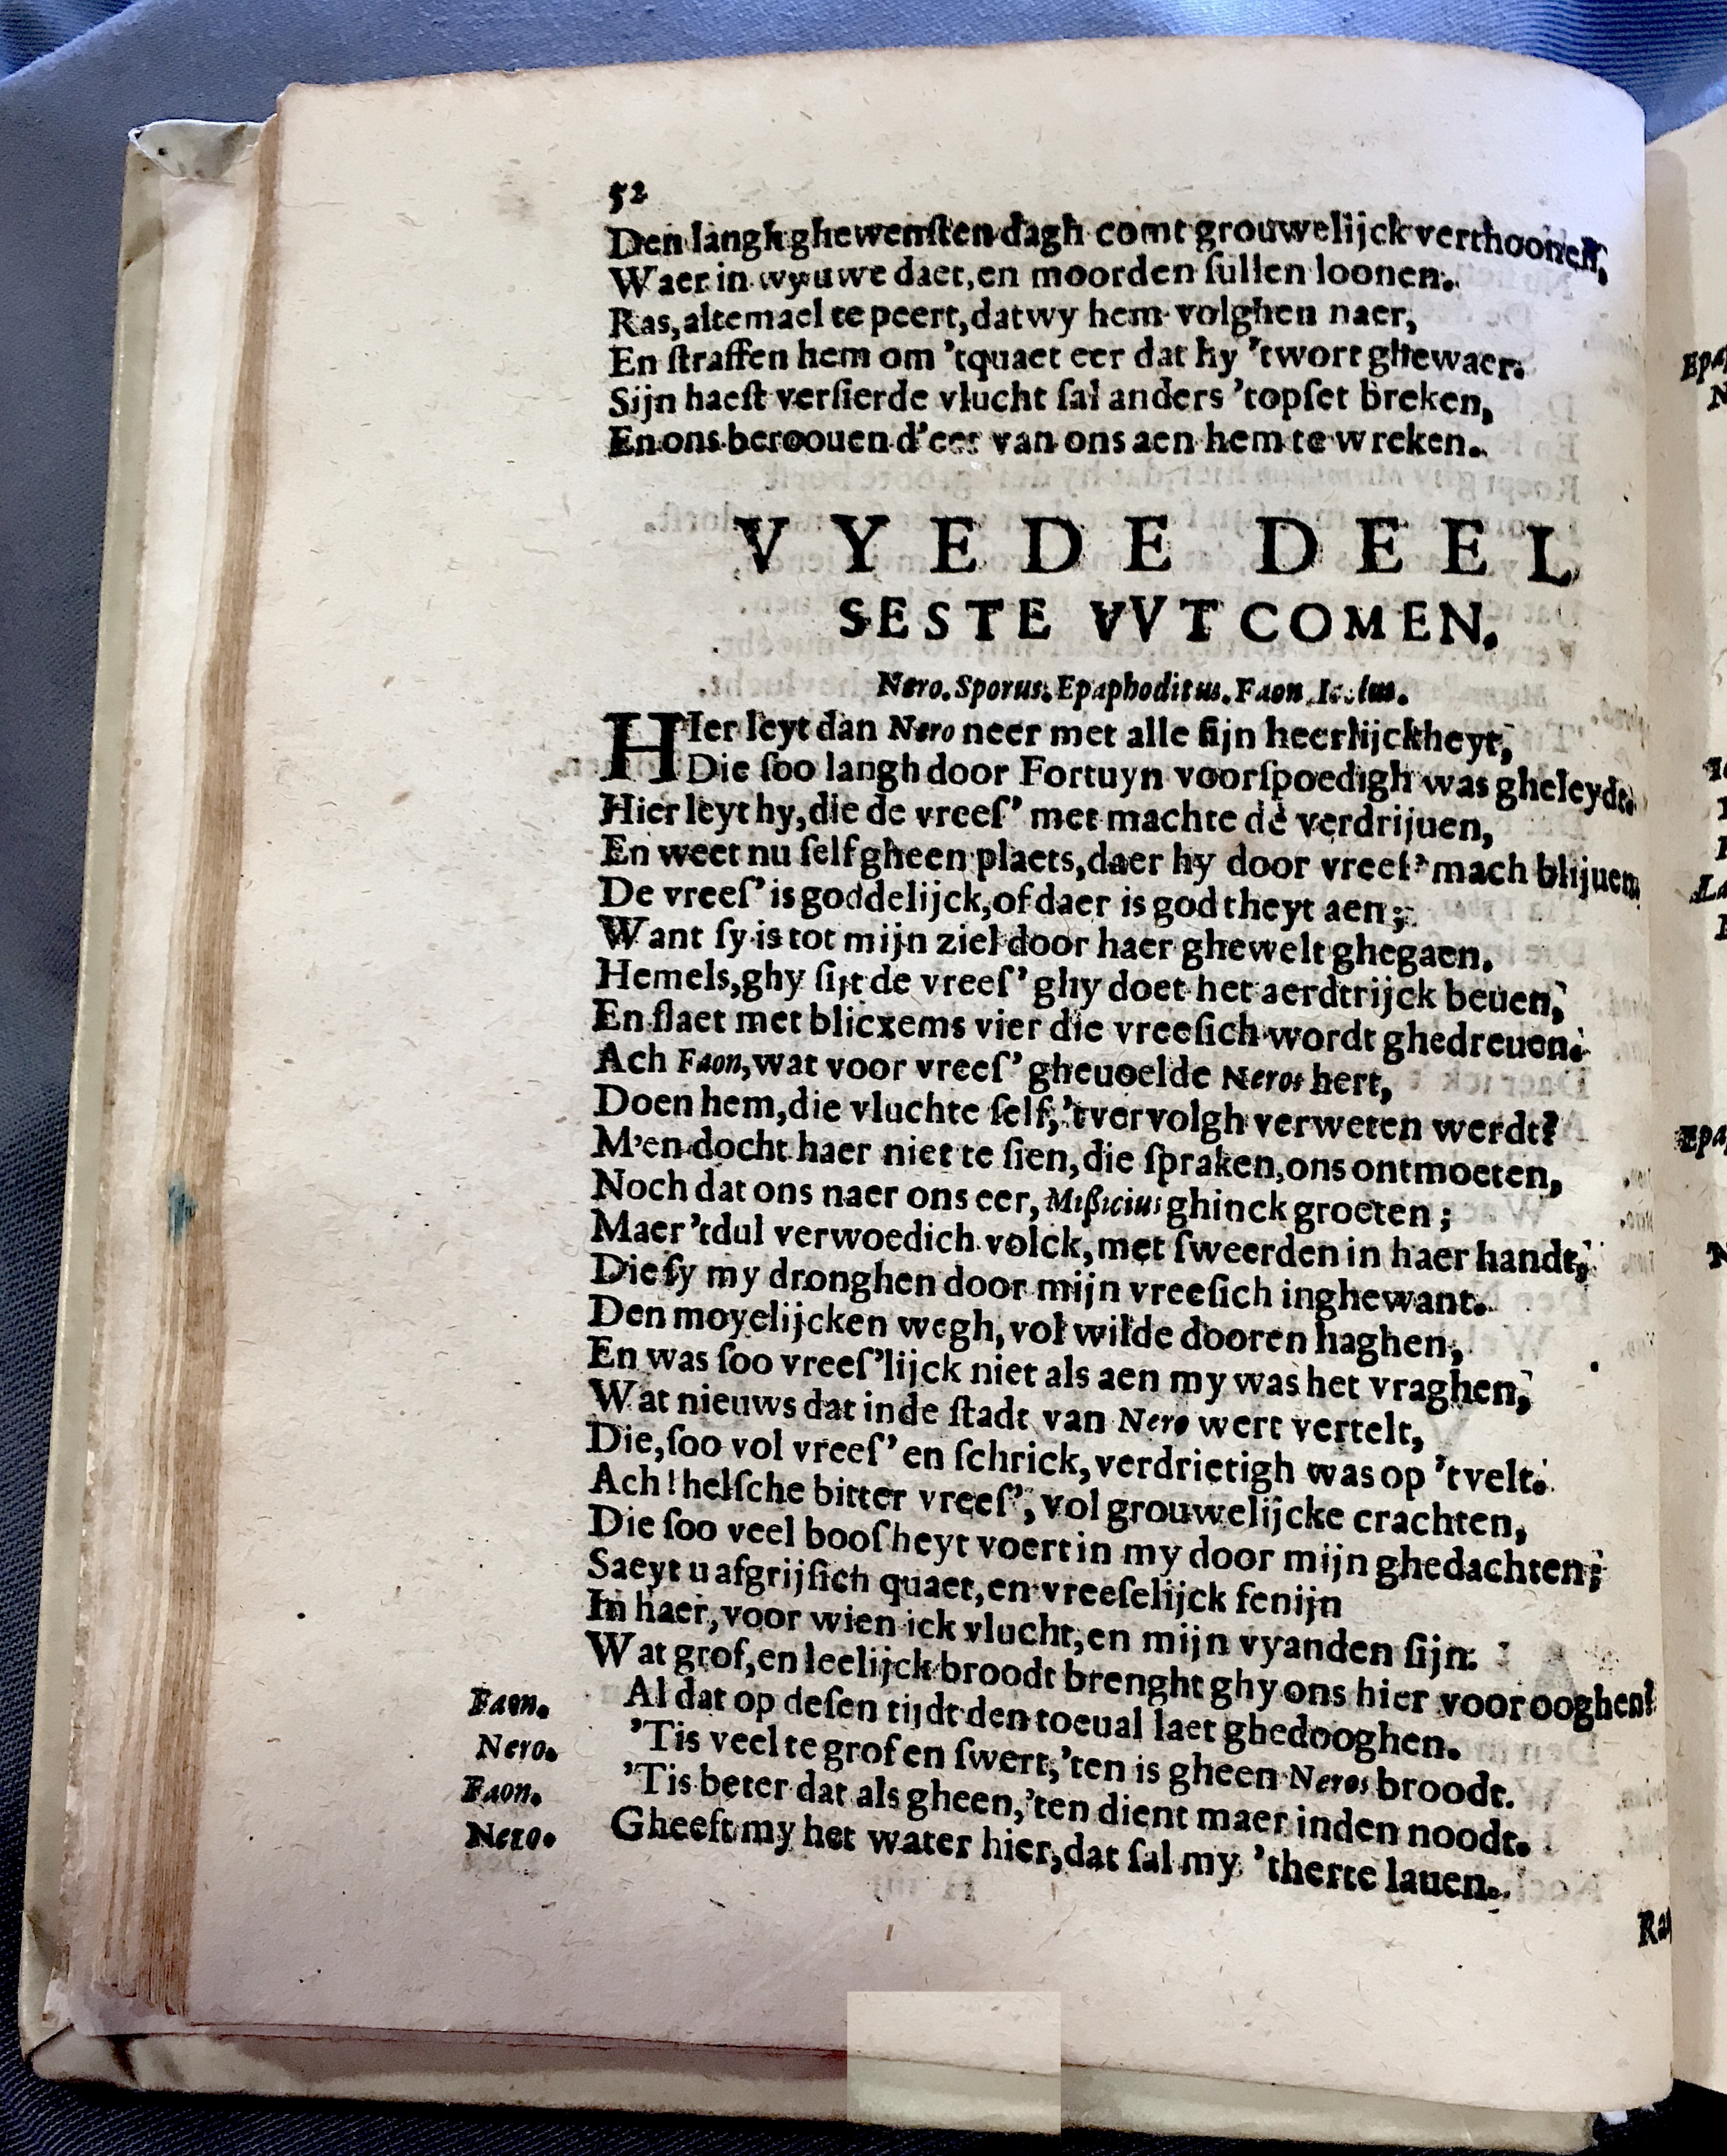 52
Den langh ghewensten dagh comt grouwelijck verthoonen,
Waer in wy uwe daet, en moorden sullen loonen.
Ras, altemael te peert, dat wy hem volghen naer,
En straffen hem om 'tquaet eer dat hy 'twort ghewaer.
Sijn haest versierde vlucht sal anders 'topset breken,
En ons beroouen d'eer van ons aen hem te wreken.
VYEDE DEEL
SESTE VVTCOMEN.
Nero. Sporus. Epaphoditus. Faon. Icelus.
HIer leyt dan Nero neer met alle sijn heerlijckheyt,
Die soo langh door Fortuyn voorspoedigh was gheleydt.
Hier leyt hy, die de vrees' met machte dé verdrijuen,
En weet nu self gheen plaets, daer hy door vrees' mach blijuen.
De vrees' is goddelijck, of daer is godtheyt aen;
Want sy is tot mijn ziel door haer ghewelt ghegaen.
Hemels, ghy sijt de vrees' ghy doet het aerdtrijck beuen,
En slaet met blicxems vier die vreesich wordt ghedreuen.
Ach Faon, wat voor vrees' gheuoelde Neros hert,
Doen hem, die vluchte self, 'tvervolgh verweten werdt?
M'en docht haer niet te sien, die spraken, ons ontmoeten,
Noch dat ons naer ons eer, Mißicius ghinck groeten;
Maer 'tdul verwoedich volck, met sweerden in haer handt,
Die sy my dronghen door mijn vreesich inghewant.
Den moyelijcken wegh, vol wilde dooren haghen,
En was soo vrees'lijck niet als aen my was het vraghen,
Wat nieuws dat inde stadt van Nero wert vertelt,
Die, soo vol vrees' en schrick, verdrietigh was op 'tvelt.
Ach! helsche bitter vrees', vol grouwelijcke crachten,
Die soo veel boosheyt voert in my door mijn ghedachten;
Saeyt u afgrijsich quaet, en vreeselijck fenijn
In haer, voor wien ick vlucht, en mijn vyanden sijn.
Wat grof, en leelijck broodt brenght ghy ons hier voor ooghen!
Faon. Al dat op desen tijdt den toeual laet ghedooghen.
Nero. 'Tis veel te grof en swert, 'ten is gheen Neros broodt.
Faon. 'Tis beter dat als gheen, 'ten dient maer inden noodt.
Nero. Gheeft my het water hier, dat sal my 'therte lauen.